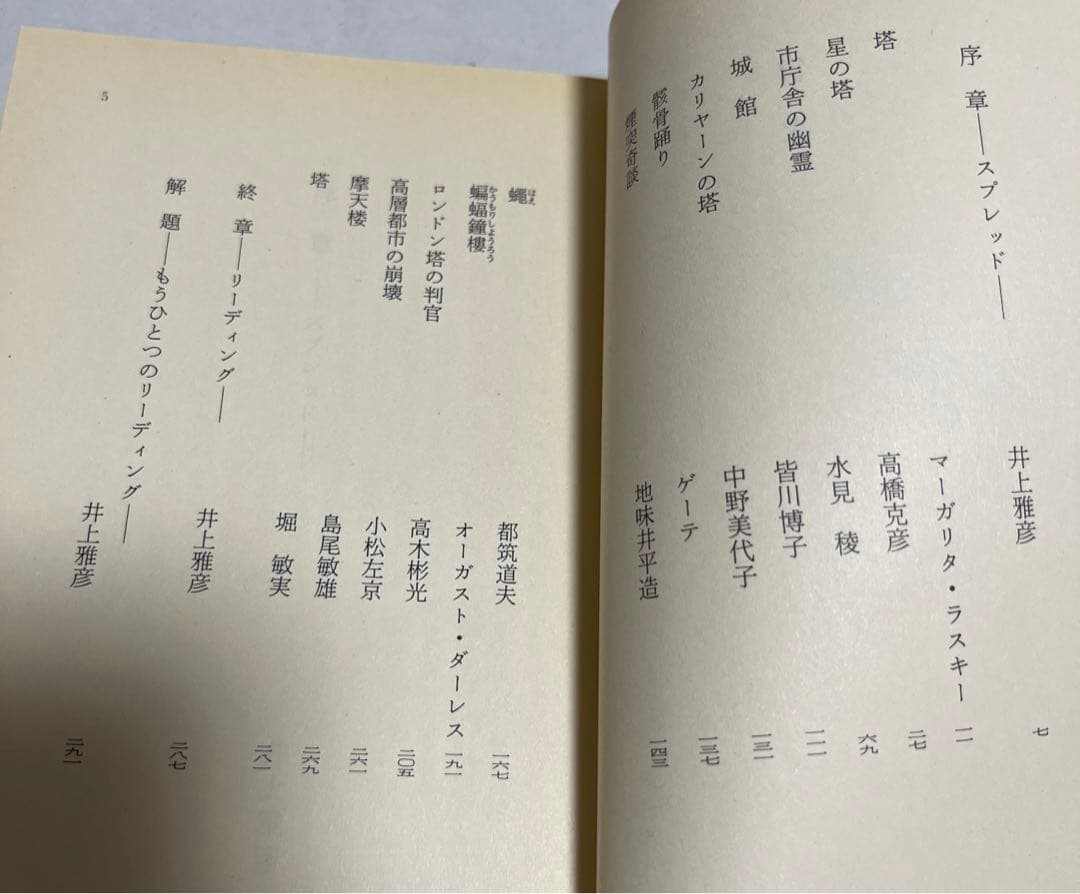 序章――スプレッド―― 井上雅彦 七
塔 マーガリタ・ラスキー 一一
星の塔 高橋克彦 二七
市庁舎の幽霊 水見 稜 六九
城館 皆川博子 一一一
カリヤーンの塔 中野美代子 一三一
骸骨踊り ゲーテ 一三七
煙突奇談 地味井平造 一四三
蠅 はえ 都筑道夫 一六七
蝙蝠鐘樓 かうもりしようろう オーガスト・ダーレス 一九一
ロンドン塔の判官 高木彬光 二〇五
高層都市の崩壊 小松左京 二六一
摩天楼 島尾敏雄 二六九
塔 堀 敏実 二八一
終章――リーディング―― 井上雅彦 二八七
解題――もうひとつのリーディング―― 井上雅彦 二九一
5